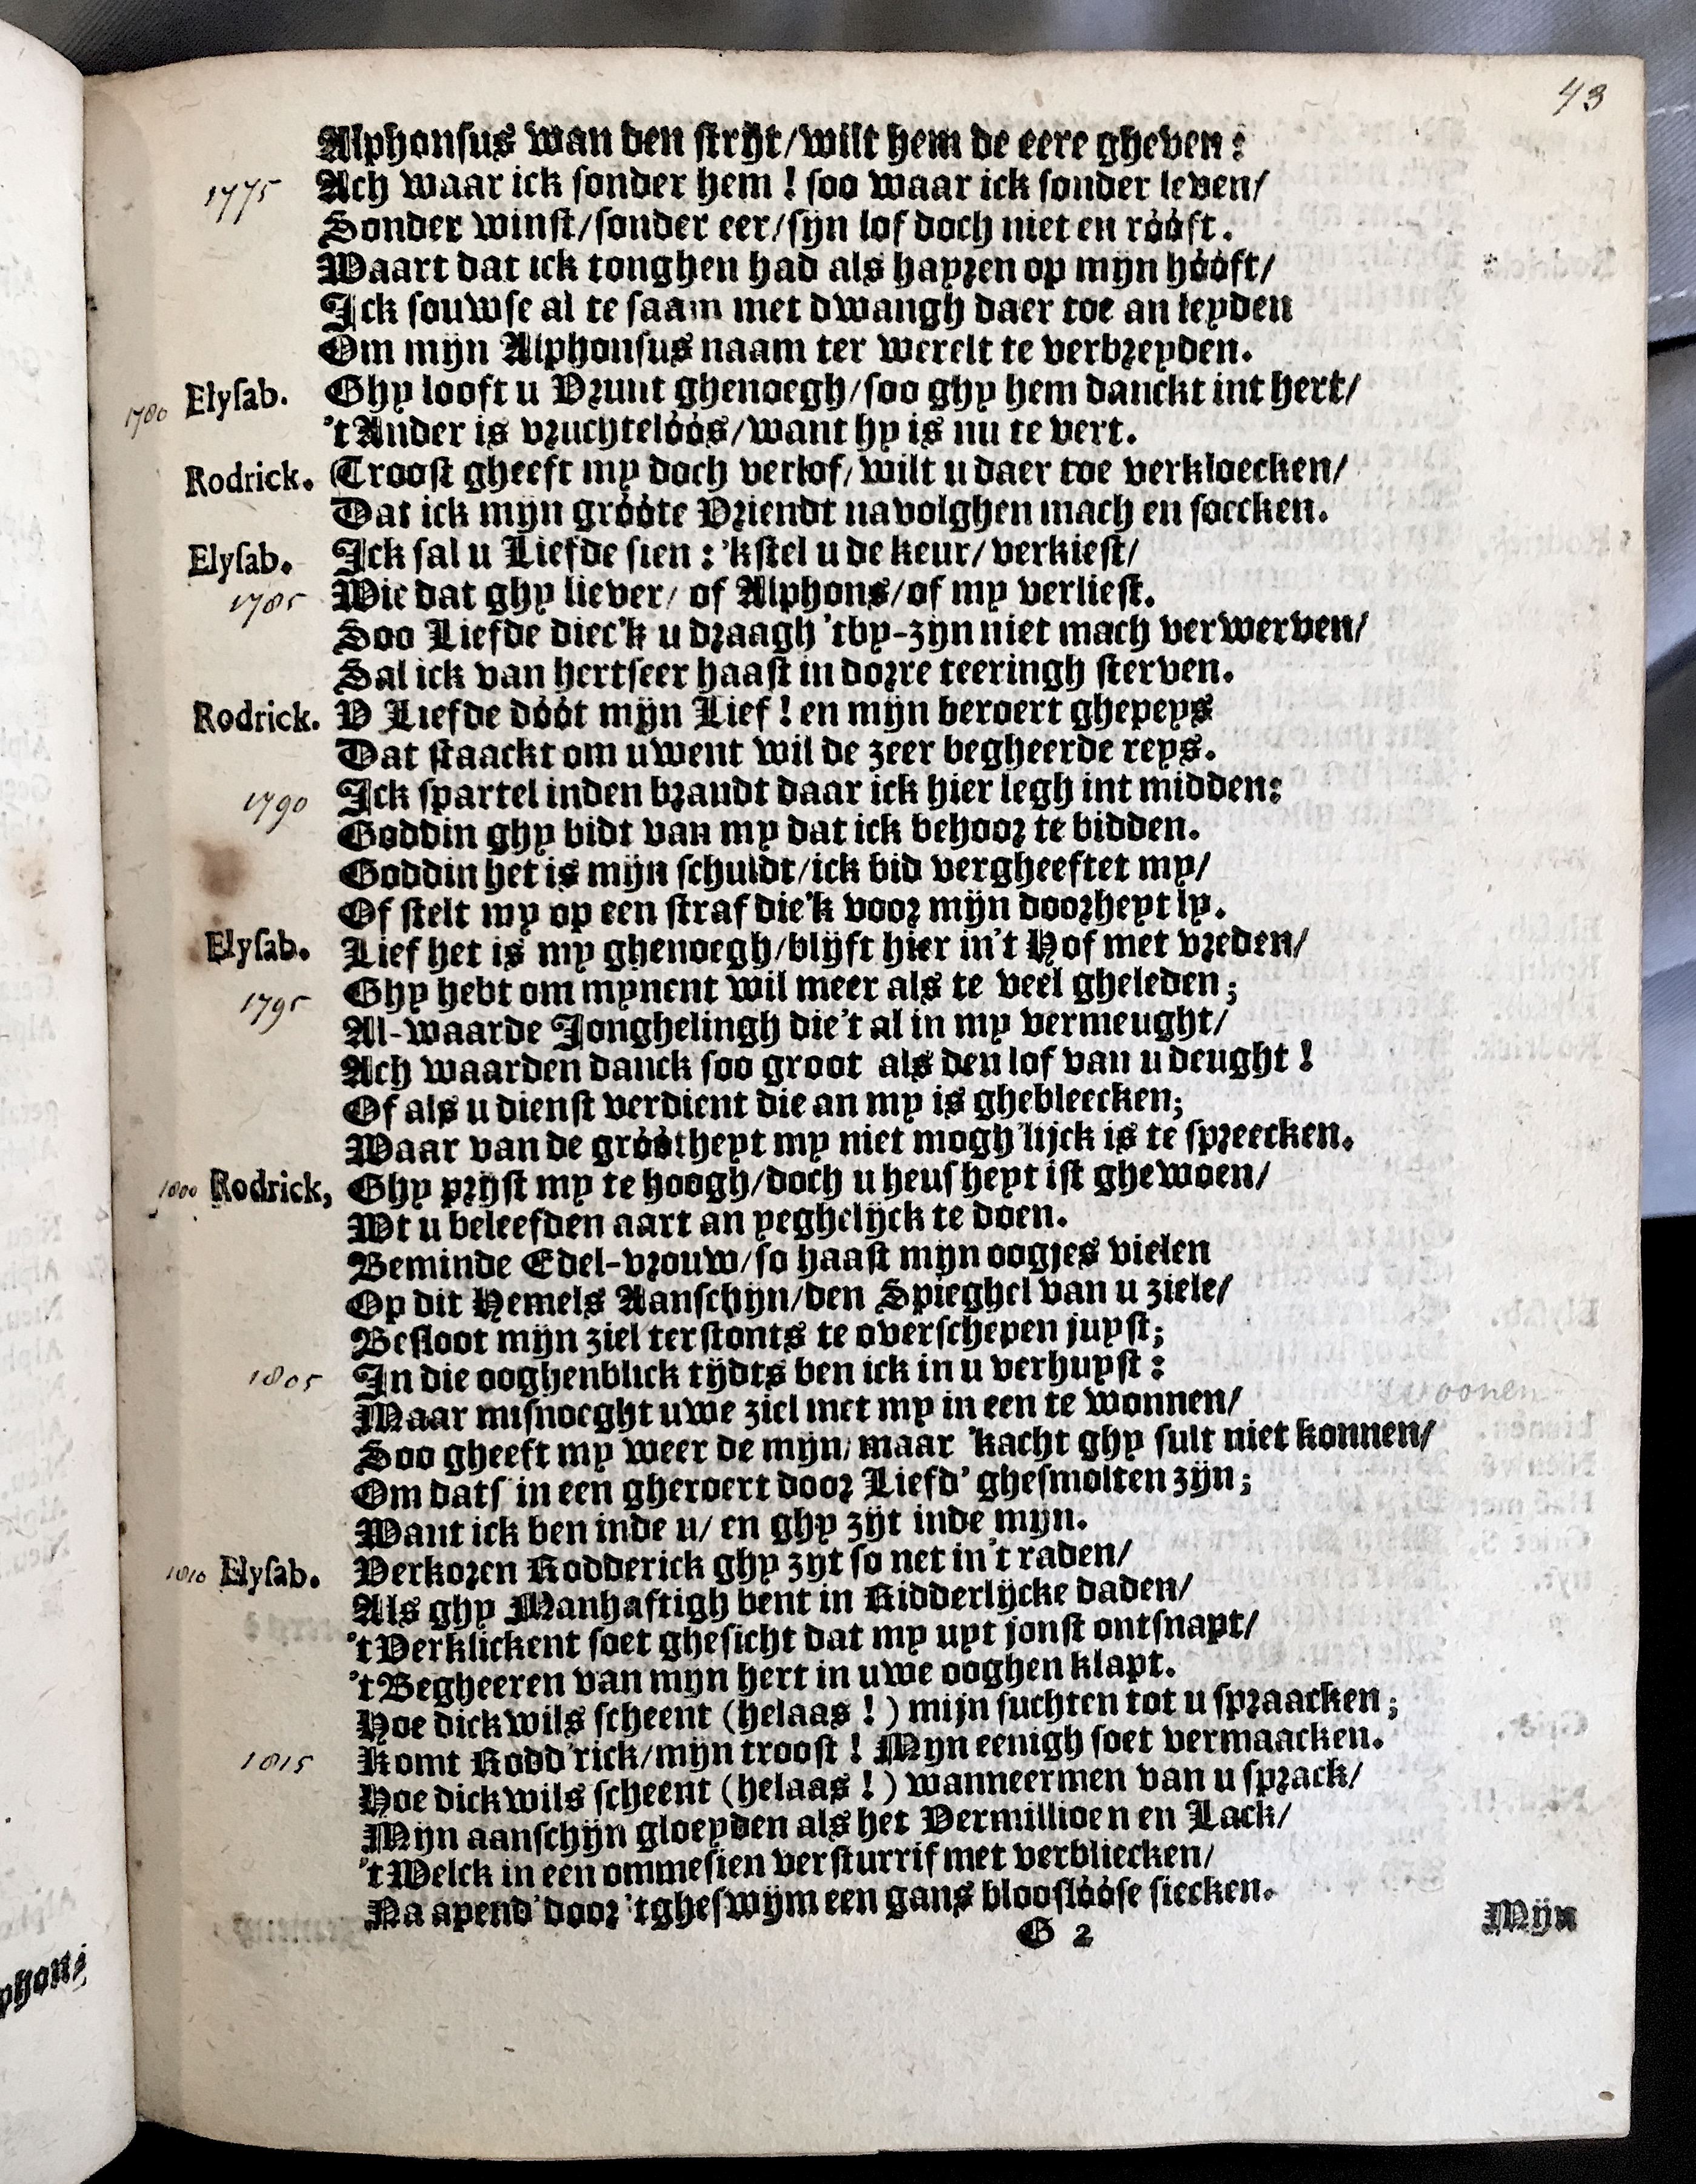 43
Alphonsus wan den strijt/wilt hem de eere gheven:
1775 Ach waar ick sonder hem! soo waar ick sonder leven/
Sonder winst/sonder eer/sijn lof doch niet en róóft.
Waart dat ick tonghen had als hayren op mijn hóóft/
Ick souwse al te saam met dwangh daer toe an leyden
Om mijn Alphonsus naam ter werelt te verbreyden.
1780 Elysab. Ghy looft u Vrunt ghenoegh/soo ghy hem danckt int hert/
't Ander is vruchtelóós/want hy is nu te vert.
Rodrick. Troost gheeft my doch verlof/wilt u daer toe verkloecken/
Dat ick mijn gróóte Vriendt navolghen mach en soecken.
Elysab. Ick sal u Liefde sien: 'kstel u de keur/verkiest/
1785 Wie dat ghy liever/of Alphons/of my verliest.
Soo Liefde diec'k u draagh 'tby-zijn niet mach verwerven/
Sal ick van hertseer haast in dorre teeringh sterven.
Rodrick. V Liefde dóót mijn Lief! en mijn beroert ghepeys
Dat staackt om uwent wil de zeer begheerde reys.
1790 Ick spartel inden brandt daar ick hier legh int midden:
Goddin ghy bidt van my dat ick behoor te bidden.
Goddin het is mijn schuldt/ick bid vergheeftet my/
Of stelt my op een straf die'k voor mijn doorheyt ly.
Elysab. Lief het is my ghenoegh/blijft hier in't Hof met vreden/
1795 Ghy hebt om mynent wil meer als te veel gheleden;
Al-waarde Jonghelingh die't al in my vermeught/
Ach waarden danck soo groot als den lof van u deught!
Of als u dienst verdient die an my is ghebleecken;
Waar van de gróótheyt my niet mogh'lijck is te spreecken.
1800 Rodrick, Ghy prijst my te hoogh/doch u heusheyt ist ghewoen/
Wt u beleefden aart an yeghelijck te doen.
Beminde Edel-vrouw/so haast mijn oogjes vielen
Op dit Hemels Aanschijn/den Spieghel van u ziele/
Besloot mijn ziel terstonts te overschepen juyst;
1805 In die ooghenblick tijdts ben ick in u verhuyst:
woonen
Maar misnoeght uwe ziel met my in een te wonnen/
Soo gheeft my weer de mijn/maar 'kacht ghy sult niet konnen/
Om dats in een gheroert door Liefd' ghesmolten zijn;
Want ick ben inde u/en ghy zijt inde mijn.
1810 Elysab. Verkoren Rodderick ghy zyt so net in't raden/
Als ghy Manhaftigh bent in Ridderlijcke daden/
't Verklickent soet ghesicht dat my uyt jonst ontsnapt/
't Begheeren van mijn hert in uwe ooghen klapt.
Hoe dickwils scheent (helaas!) mijn suchten tot u spraacken;
1815 Komt Rodd'rick/mijn troost! Mijn eenigh soet vermaacken.
Hoe dickwils scheent (helaas!) wanneermen van u sprack/
Mijn aanschijn gloeyden als het Vermillioen en Lack/
't Welck in een ommesien versturrif met verbliecken/
Na apend' door 'tgheswijm een gans blooslóóse siecken.
G 2
Mijn